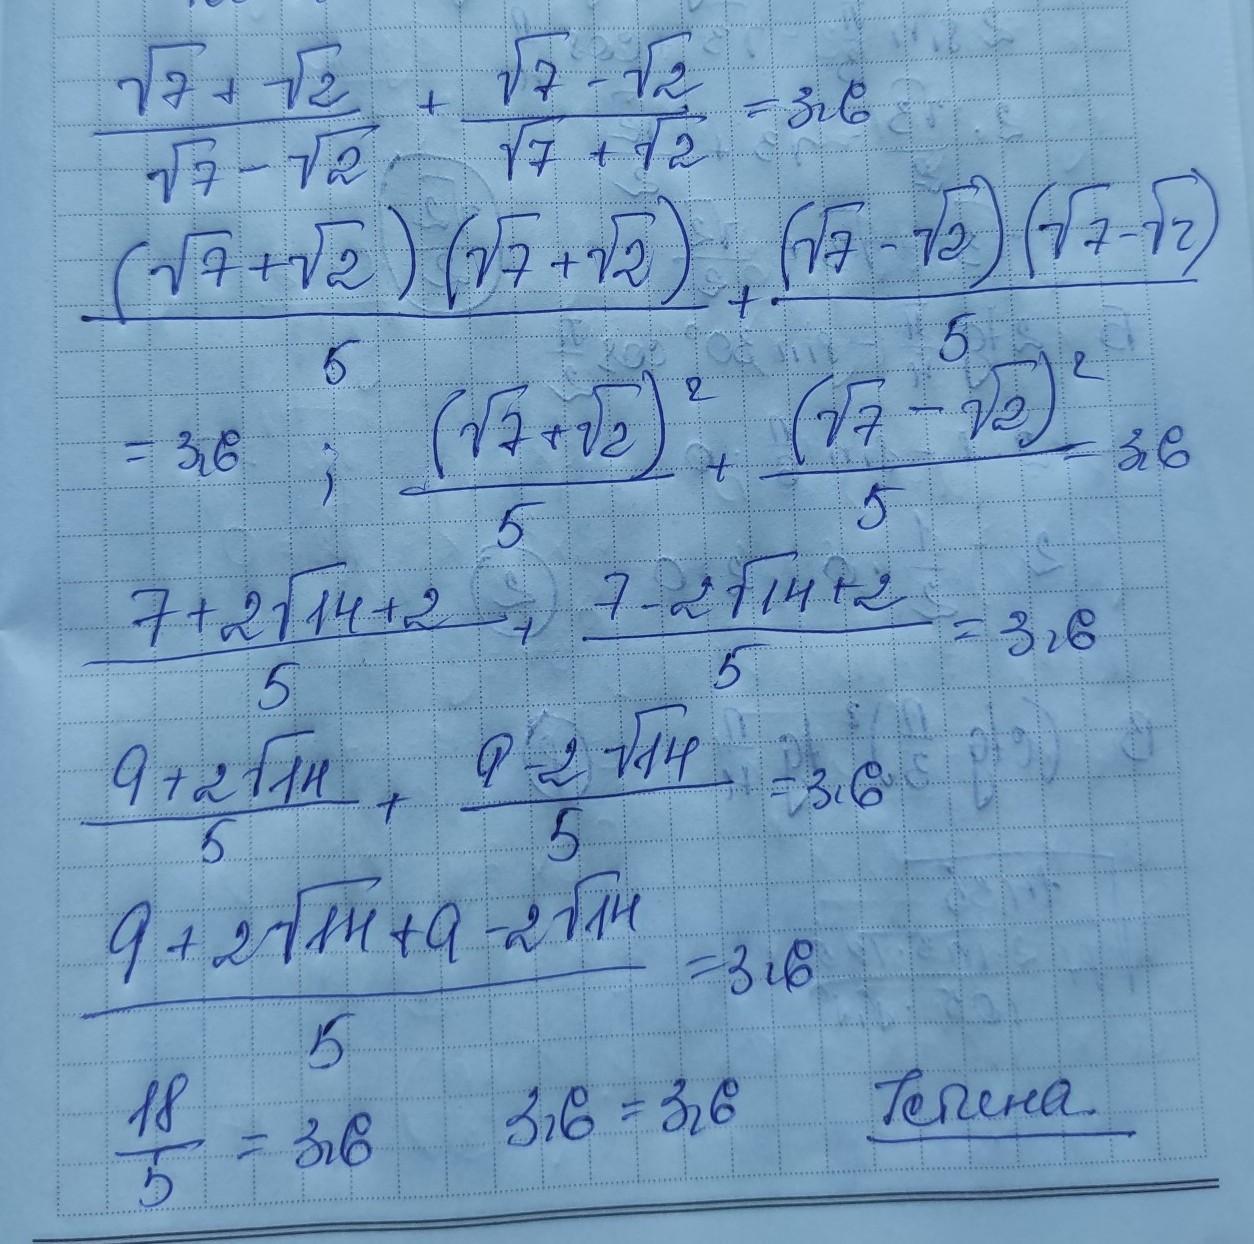 (√7 + √2)/(√7 - √2) + (√7 - √2)/(√7 + √2) = 3,6
((√7 + √2)(√7 + √2))/5 + ((√7 - √2)(√7 - √2))/5
= 3,6 ; (√7 + √2)²/5 + (√7 - √2)²/5 = 3,6
(7 + 2√14 + 2)/5 + (7 - 2√14 + 2)/5 = 3,6
(9 + 2√14)/5 + (9 - 2√14)/5 = 3,6
(9 + 2√14 + 9 - 2√14)/5 = 3,6
18/5 = 3,6 3,6 = 3,6